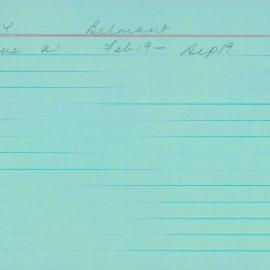 Belmont
ue a Feb 19 - Sep 19